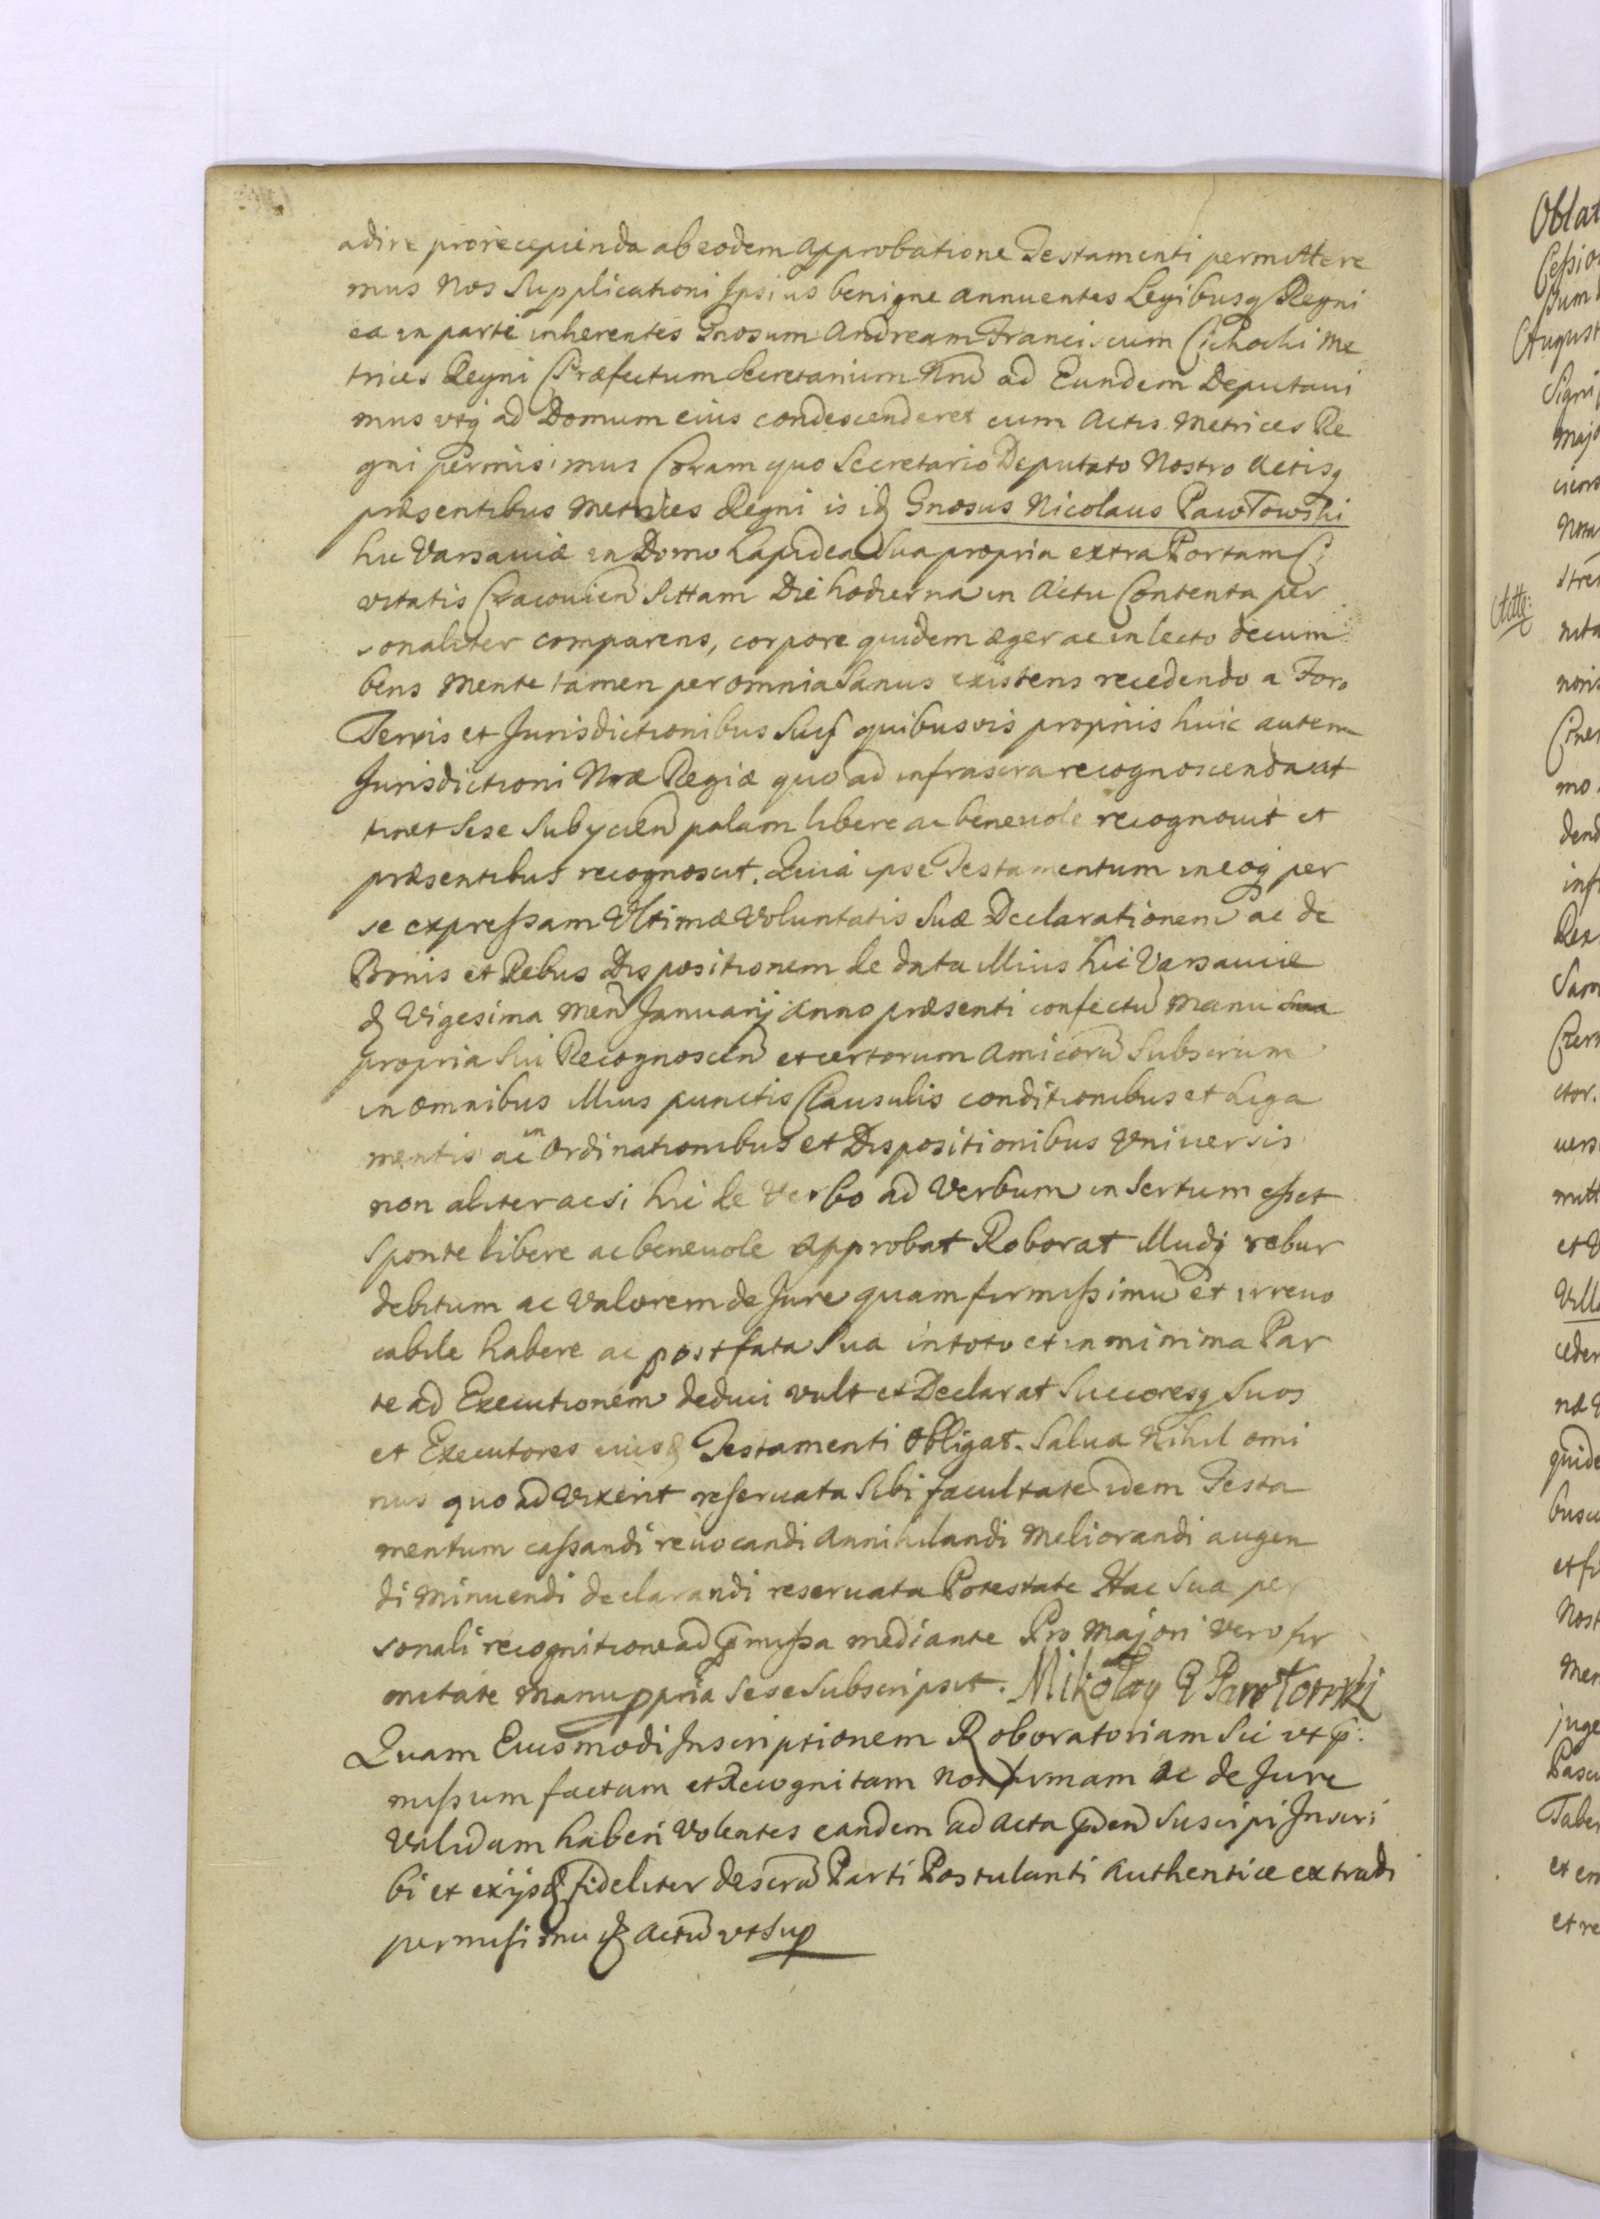 adire pro recipienda ab eodem Approbatione Testamenti permittere
mus Nos Supplicationi Ipsius benigne annuentes Legibusq Regni
ea in parte inherentes Gnosum Andream Franciscum Cichocki Me
trices Regni Præfectum Secretarium Nrũ ad Eundem Deputaui
mus vtq ad Domum eius condescenderet cum Actis Metrices Re
gni permisimus Coram quo Secretario Deputato Nostro Actisq
præsentibus Metrices Regni is idq Gnosus Nicolaus Pawłowski
hic Varsauiæ in Domo Lapidea Sua propria extra Portam Ci
vitatis Cracouien̄ Sittam Die hodierna in Actu Contenta per
sonaliter comparens, corpore quidem æger ac in lecto decum
bens Mente tamen per omnia Sanus existens recedendo a Foro
Terris et Jurisdictionibus Suis quibusvis proprijs huic autem
Jurisdictioni Nræ Regiæ quo ad infrascra recognoscenda at
tinet Sese Subycien̄ palam libere ac beneuole recognouit et
præsentibus recognoscit. Quia ipse Testamentum ineoq per
se expressam Vltimæ Voluntatis Suæ Declarationem ac de
Bonis et Rebus Dispositionem de data illius hic Varsauiæ
d Vigesima Men̄ Januarij Anno præsenti confectũ Manu Sua
propria Sui Recognoscen̄ et certorum Amicorũ Subscrium
in omnibus illius punctis Clausulis conditionibus et Liga
mentis ac in Ordinationibus et Dispositionibus Vniuersis
non aliter acsi hic de Verbo ad Verbum insertum esset
Sponte libere ac beneuole Approbat Roborat Illudq robur
debitum ac Valorem de Jure quam firmissimũ et irreuo
cabile habere ac post fata Sua in toto et in minima Par
te ad Executionem deduci vult et Declarat Succoresq Suos
et Executores eiusd Testamenti Obligat. Salua Nihil omi
nus quo ad Vixerit reseruata Sibi facultate idem Testa
mentum cassandi reuocandi Annihilandi Meliorandi augen
di Minuendi declarandi reseruata Potestate Hac Sua per
sonali recognitione ad p̄missa mediante Pro Majori Vero fir
mitate Manu ppria Sese Subscripsit. Mikołay P Pawłowski
Quam Eiusmodi Inscriptionem Roboratoriam Sic vt p̄
missum factam et Recognitam Nos firmam ac de Jure
Validam haberi Volentes eandem ad Acta p̄den̄ Suscipi Inscri
bi et ex ijsd fideliter descrã Parti Postulanti Authentice extradi
permisimu Actũ vt Sup